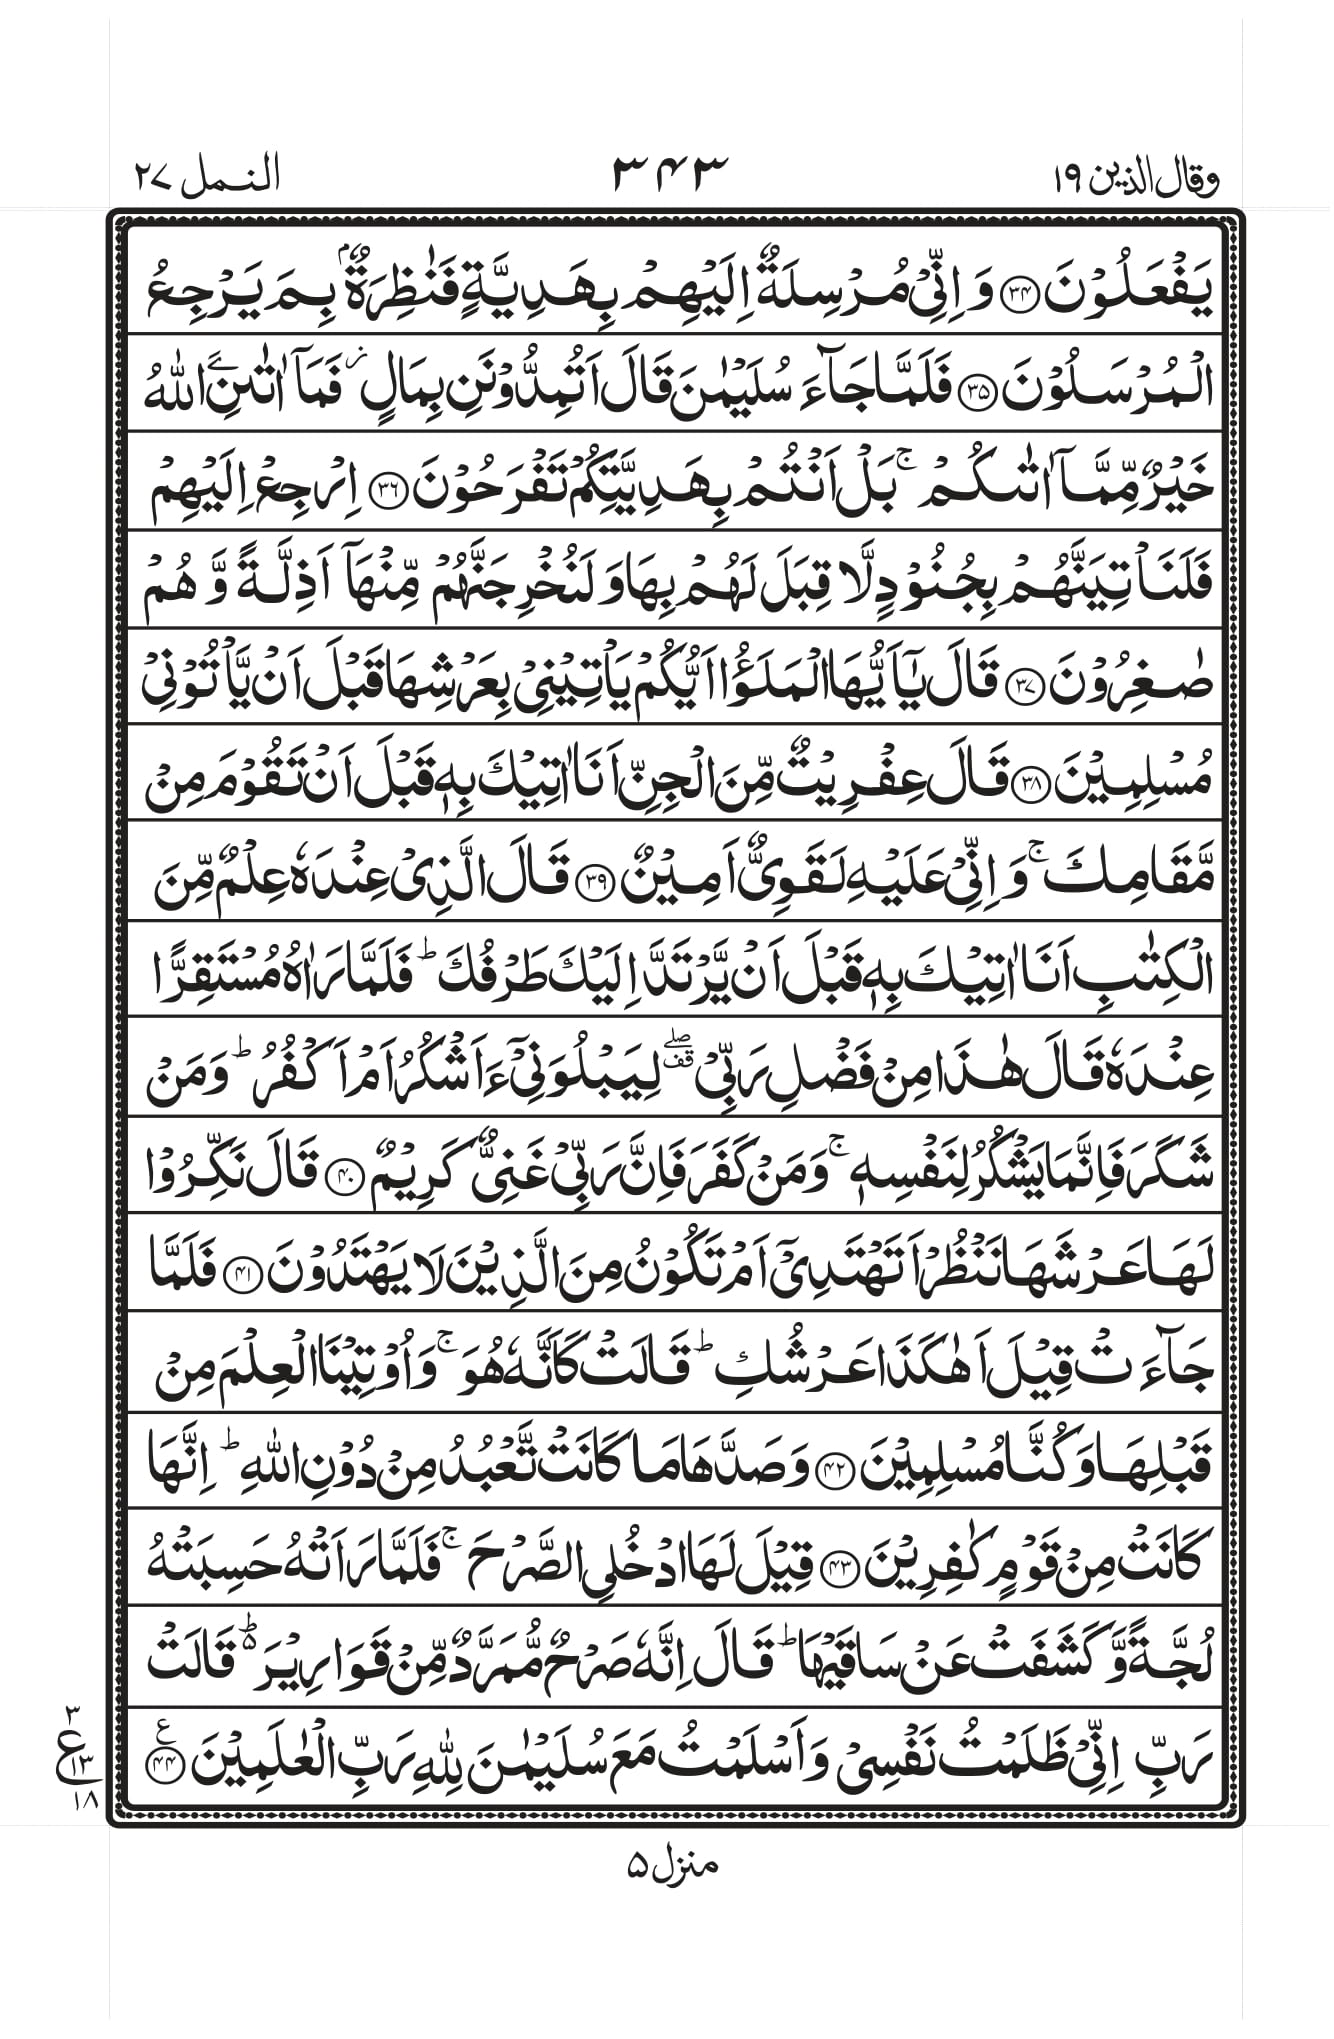 وقال الذین ۱۹
۳۴۳
النمل ۲۷
یَفْعَلُوْنَ ﴿۳۴﴾ وَ اِنِّیْ مُرْسِلَةٌ اِلَیْهِمْ بِهَدِیَّةٍ فَنٰظِرَةٌۢ بِمَ یَرْجِعُ
الْمُرْسَلُوْنَ ﴿۳۵﴾ فَلَمَّا جَآءَ سُلَیْمٰنَ قَالَ اَتُمِدُّوْنَنِ بِمَالٍ ؗ فَمَاۤ اٰتٰىنِۦَ اللّٰهُ
خَیْرٌ مِّمَّاۤ اٰتٰىكُمْ ۚ بَلْ اَنْتُمْ بِهَدِیَّتِكُمْ تَفْرَحُوْنَ ﴿۳۶﴾ اِرْجِعْ اِلَیْهِمْ
فَلَنَاْتِیَنَّهُمْ بِجُنُوْدٍ لَّا قِبَلَ لَهُمْ بِهَا وَ لَنُخْرِجَنَّهُمْ مِّنْهَاۤ اَذِلَّةً وَّ هُمْ
صٰغِرُوْنَ ﴿۳۷﴾ قَالَ یٰۤاَیُّهَا الْمَلَؤُا اَیُّكُمْ یَاْتِیْنِیْ بِعَرْشِهَا قَبْلَ اَنْ یَّاْتُوْنِیْ
مُسْلِمِیْنَ ﴿۳۸﴾ قَالَ عِفْرِیْتٌ مِّنَ الْجِنِّ اَنَا اٰتِیْكَ بِهٖ قَبْلَ اَنْ تَقُوْمَ مِنْ
مَّقَامِكَ ۚ وَ اِنِّیْ عَلَیْهِ لَقَوِیٌّ اَمِیْنٌ ﴿۳۹﴾ قَالَ الَّذِیْ عِنْدَهٗ عِلْمٌ مِّنَ
الْكِتٰبِ اَنَا اٰتِیْكَ بِهٖ قَبْلَ اَنْ یَّرْتَدَّ اِلَیْكَ طَرْفُكَ ؕ فَلَمَّا رَاٰهُ مُسْتَقِرًّا
عِنْدَهٗ قَالَ هٰذَا مِنْ فَضْلِ رَبِّیْ ۖ۫ لِیَبْلُوَنِیْۤ ءَاَشْكُرُ اَمْ اَكْفُرُ ؕ وَ مَنْ
شَكَرَ فَاِنَّمَا یَشْكُرُ لِنَفْسِهٖ ۚ وَ مَنْ كَفَرَ فَاِنَّ رَبِّیْ غَنِیٌّ كَرِیْمٌ ﴿۴۰﴾ قَالَ نَكِّرُوْا
لَهَا عَرْشَهَا نَنْظُرْ اَتَهْتَدِیْۤ اَمْ تَكُوْنُ مِنَ الَّذِیْنَ لَا یَهْتَدُوْنَ ﴿۴۱﴾ فَلَمَّا
جَآءَتْ قِیْلَ اَهٰكَذَا عَرْشُكِ ؕ قَالَتْ كَاَنَّهٗ هُوَ ۚ وَ اُوْتِیْنَا الْعِلْمَ مِنْ
قَبْلِهَا وَ كُنَّا مُسْلِمِیْنَ ﴿۴۲﴾ وَ صَدَّهَا مَا كَانَتْ تَّعْبُدُ مِنْ دُوْنِ اللّٰهِ ؕ اِنَّهَا
كَانَتْ مِنْ قَوْمٍ كٰفِرِیْنَ ﴿۴۳﴾ قِیْلَ لَهَا ادْخُلِی الصَّرْحَ ۚ فَلَمَّا رَاَتْهُ حَسِبَتْهُ
لُجَّةً وَّ كَشَفَتْ عَنْ سَاقَیْهَا ؕ قَالَ اِنَّهٗ صَرْحٌ مُّمَرَّدٌ مِّنْ قَوَارِیْرَ ؕ۬ قَالَتْ
رَبِّ اِنِّیْ ظَلَمْتُ نَفْسِیْ وَ اَسْلَمْتُ مَعَ سُلَیْمٰنَ لِلّٰهِ رَبِّ الْعٰلَمِیْنَ ﴿۴۴﴾ ع
۳
ع
۱۳
۱۸
منزل ۵